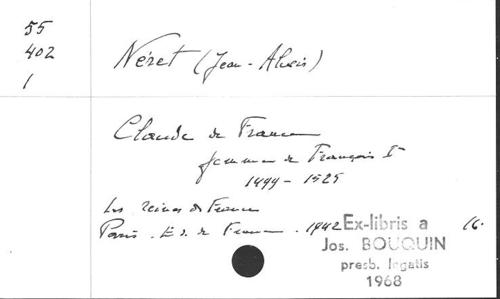 55
402
1
Néret (Jean-Alexis)
Claude de France
femme de François Ier
1499 - 1525
Les reines de France
Paris. Ed. de France. 1942 16.
Ex-libris a
Jos. BOUQUIN
presb. legatis
1968